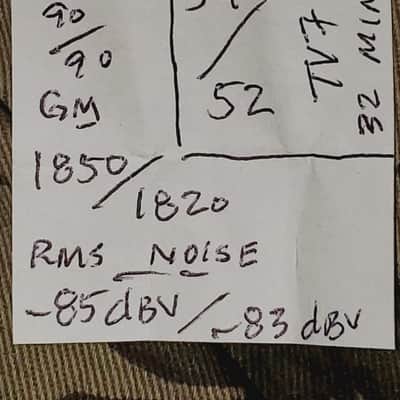 90/90
GM
1850/1820
RMS NOISE
-85dBV/-83dBV
/52
32 MIN